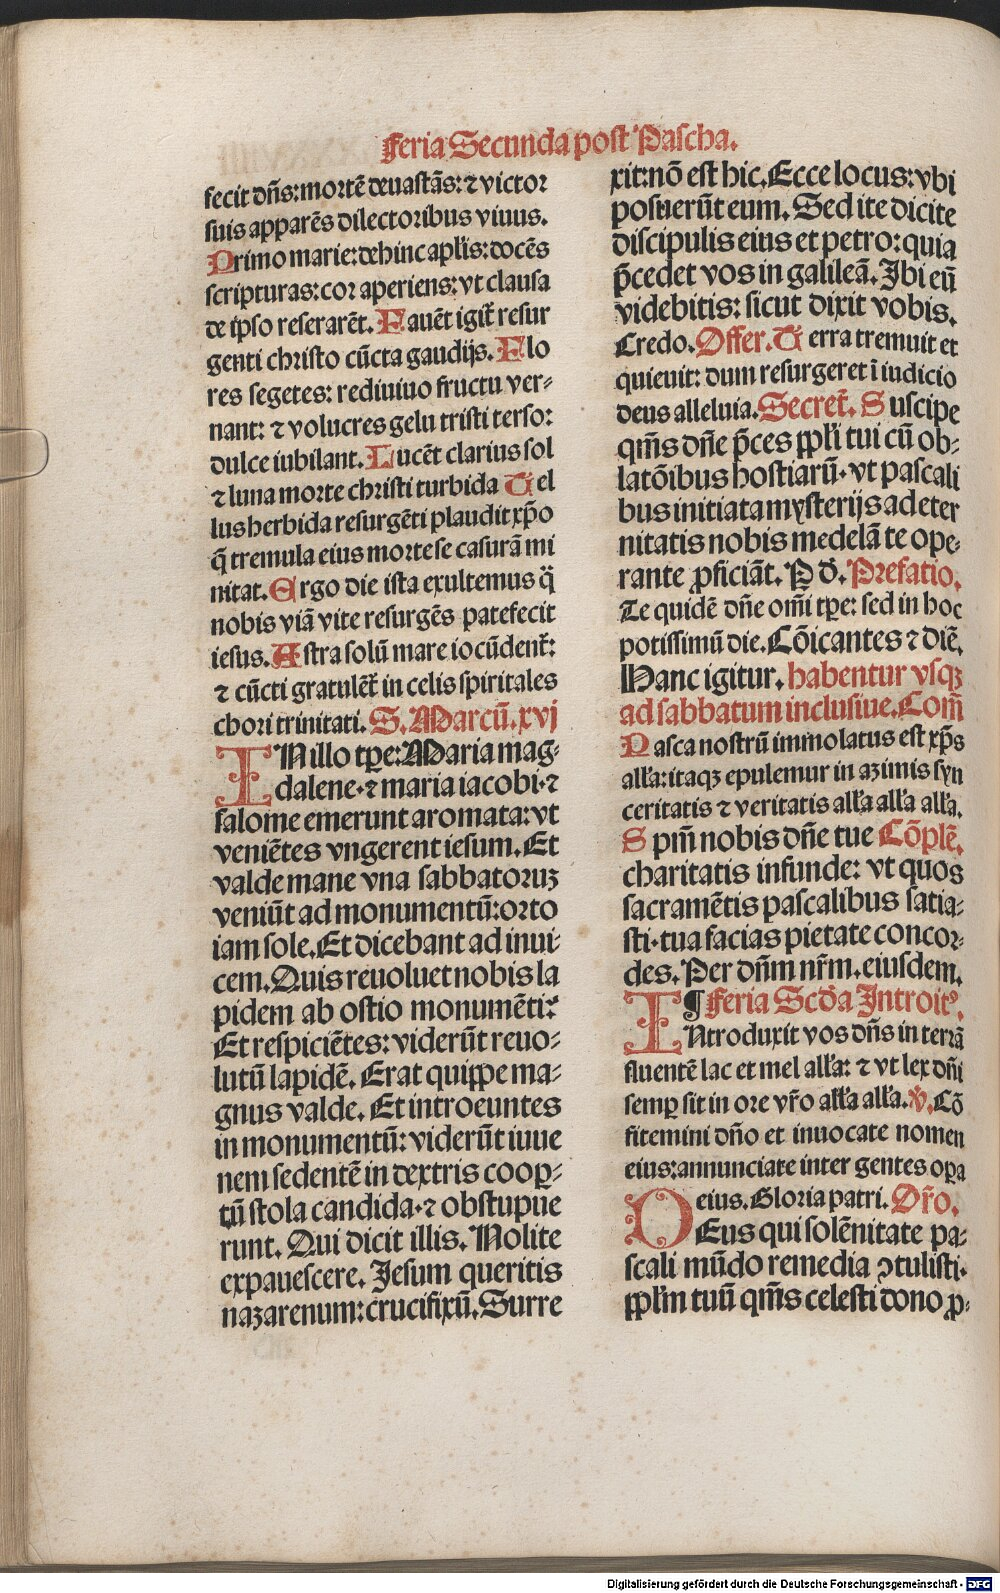 Feria Secunda post Pascha.
fecit dn̄s: mortē deuastās: ⁊ victor
suis apparēs dilectoribus viuus.
Primo marie: dehinc apl̄is: docēs
scripturas: cor aperiens: vt clausa
de ipso reserarēt. Fauēt igit̄ resur
genti christo cūcta gaudijs. Flo
res segetes: rediuiuo fructu ver⸗
nant: ⁊ volucres gelu tristi terso:
dulce iubilant. Lucēt clarius sol
⁊ luna morte christi turbida Tel
lus herbida resurgēti plaudit xp̄o
q̄ tremula eius morte se casurā mi
nitat. Ergo die ista exultemus q̄
nobis viā vite resurgēs patefecit
iesus. Astra solū mare iocūdent̄:
⁊ cūcti gratulēt̄ in celis spiritales
chori trinitati. S. Marcū. xvj
IN illo tpe: Maria mag⸗
dalene·⁊ maria iacobi·⁊
salome emerunt aromata: vt
veniētes vngerent iesum. Et
valde mane vna sabbatoruꝫ
veniūt ad monumentū: orto
iam sole. Et dicebant ad inui⸗
cem. Quis reuoluet nobis la
pidem ab ostio monumēti:
Et respiciētes: viderūt reuo⸗
lutū lapidē. Erat quippe ma⸗
gnus valde. Et introeuntes
in monumentū: viderūt iuue
nem sedentē in dextris coop⸗
tū stola candida·⁊ obstupue
runt. Qui dicit illis. Nolite
expauescere. Jesum queritis
nazarenum: crucifixū. Surre
xit: nō est hic. Ecce locus: vbi
posuerūt eum. Sed ite dicite
discipulis eius et petro: quia
p̄cedet vos in galileā. Ibi eū
videbitis: sicut dixit vobis.
Credo. Offer. Terra tremuit et
quieuit: dum resurgeret ī iudicio
deus alleluia. Secret̄. Suscipe
qm̄s dn̄e p̄ces ppl̄i tui cū ob⸗
latōibus hostiarū· vt pascali
bus initiata mysterijs ad eter
nitatis nobis medelā te ope⸗
rante ꝓficiāt. P d̄. Prefatio.
Te quidē dn̄e om̄i tp̄e: sed in hoc
potissimū die. Cōicantes ⁊ diē.
Hanc igitur. habentur vsqꝫ
ad sabbatum inclusiue. Com̄
Pasca nostrū immolatus est xp̄s
all'a: itaqꝫ epulemur in azimis syn
ceritatis ⁊ veritatis all'a all'a all'a.
Spm̄ nobis dn̄e tue Cōplē.
charitatis infunde: vt quos
sacramētis pascalibus satia⸗
sti· tua facias pietate concor⸗
des. Per dn̄m nr̄m. eiusdem.
¶ Feria Scd̄a Introit⁹.
INtroduxit vos dn̄s in terrā
fluentē lac et mel all'a: ⁊ vt lex dn̄i
semꝑ sit in ore vr̄o all'a all'a. ℣. Cō
fitemini dn̄o et inuocate nomen
eius: annunciate inter gentes oꝑa
eius. Gloria patri. Or̄o.
DEus qui solēnitate pa⸗
scali mūdo remedia ꝯtulisti·
ppl̄m tuū qm̄s celesti dono ꝓ⸗
Digitalisierung gefördert durch die Deutsche Forschungsgemeinschaft - DFG